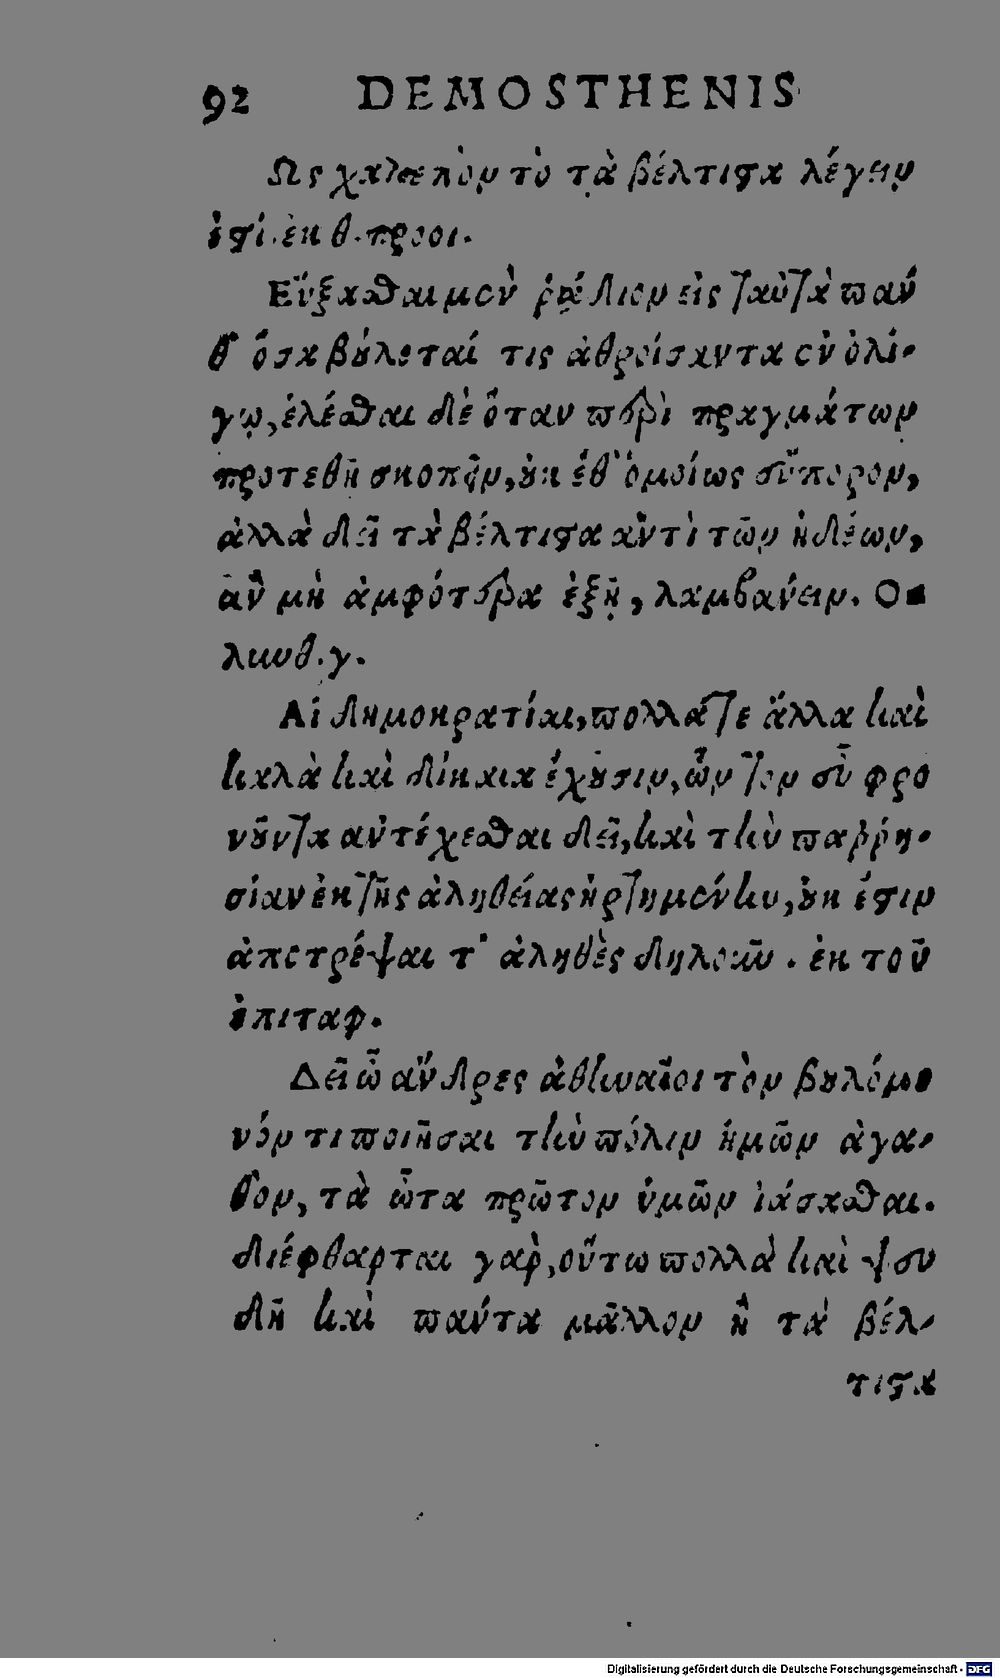 92 DEMOSTHENIS
Ως χαλεπὸν τὸ τὰ βέλτιστα λέγειν
ἐστί. ἐκ θ. προοι.
Εὔξασθαι μὲν ῥᾴδιον εἰς ταὐτὰ πάνθ'
ὅσα βούλεταί τις ἀθροίσαντα ἐν ὀλί-
γῳ, ἑλέσθαι δὲ ὅταν περὶ πραγμάτων
προτεθῇ σκοπεῖν, οὐκ ἔθ' ὁμοίως εὔπορον,
ἀλλὰ δεῖ τὰ βέλτιστα ἀντὶ τῶν ἡδέων,
ἂν μὴ ἀμφότερα ἐξῇ, λαμβάνειν. Ο-
λυνθ. γ.
Αἱ δημοκρατίαι, πολλά τε ἄλλα καὶ
καλὰ καὶ δίκαια ἔχουσιν, ὧν τὸν εὖ φρο
νοῦντα ἀντέχεσθαι δεῖ, καὶ τὴν παῤῥη-
σίαν ἐκ τῆς ἀληθείας ἠρτημένην, οὐκ ἔστιν
ἀποτρέψαι τ' ἀληθὲς δηλοῦν. ἐκ τοῦ
ἐπιταφ.
Δεῖ ὦ ἄνδρες ἀθηναῖοι τὸν βουλόμε
νόν τι ποιῆσαι τὴν πόλιν ἡμῶν ἀγα-
θον, τὰ ὦτα πρῶτον ὑμῶν ἰάσασθαι.
διέφθαρται γὰρ, οὕτω πολλὰ καὶ ψευ
δῆ καὶ πάντα μᾶλλον ἢ τὰ βέλ-
τιστα
Digitalisierung gefördert durch die Deutsche Forschungsgemeinschaft - DFG